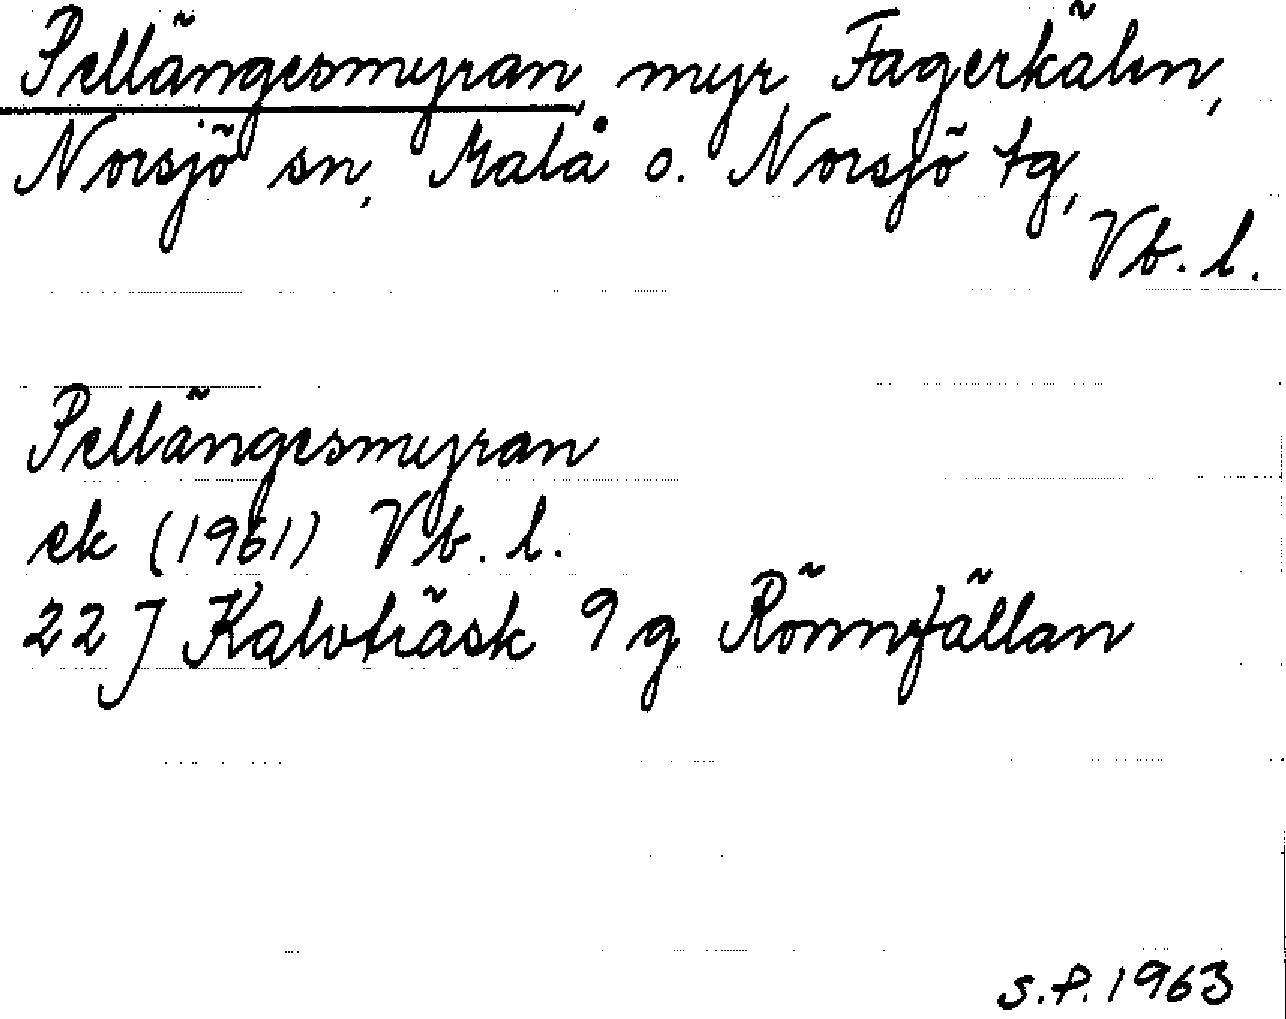 Pellängesmyran, myr Fagerkälen,
Norsjö sn, Malå o. Norsjö tg,
Vb. l.
Pellängesmyran
ek (1961) Vb. l.
22 J Kalvträsk 9 g Rönnfällan
S.P. 1963